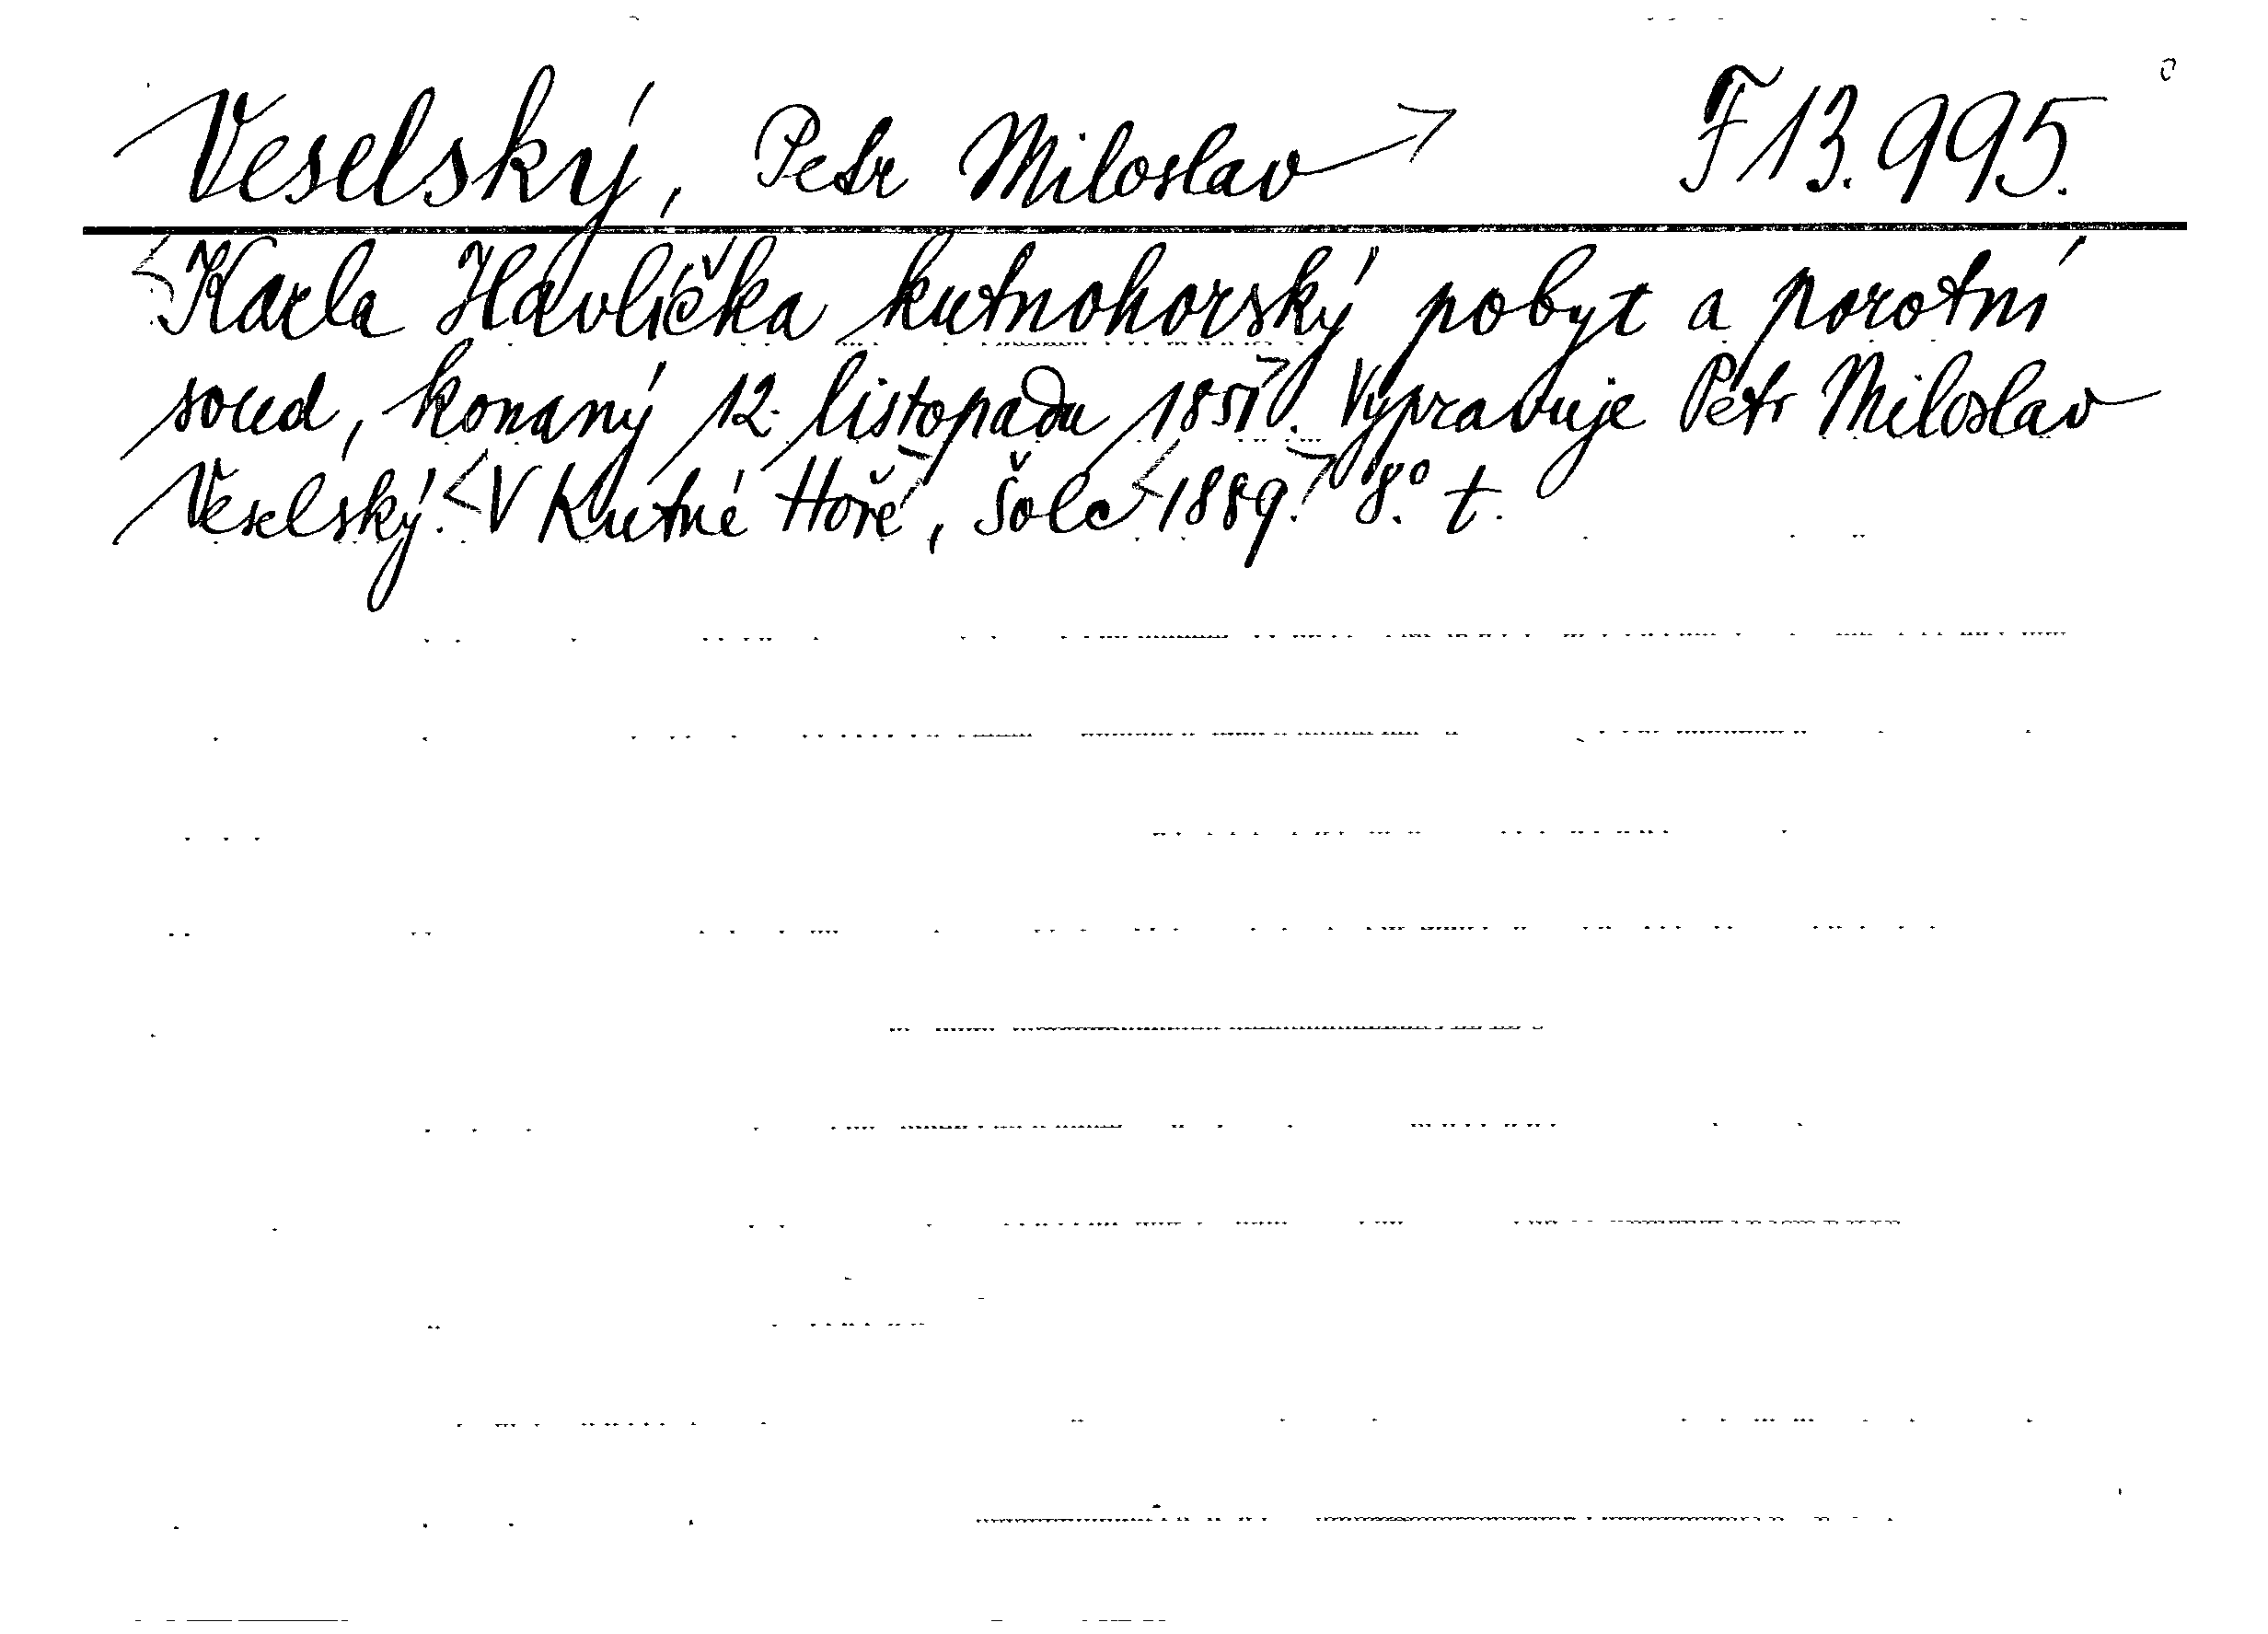 Veselský, Petr Miloslav> F 13.995.
<Karla Havlíčka kutnohorský pobyt a porotní
soud, konaný 12. listopadu 1851>. Vypravuje Petr Miloslav
Veselský. <V Kutné Hoře>, Šolc <1889.> 8.° t.